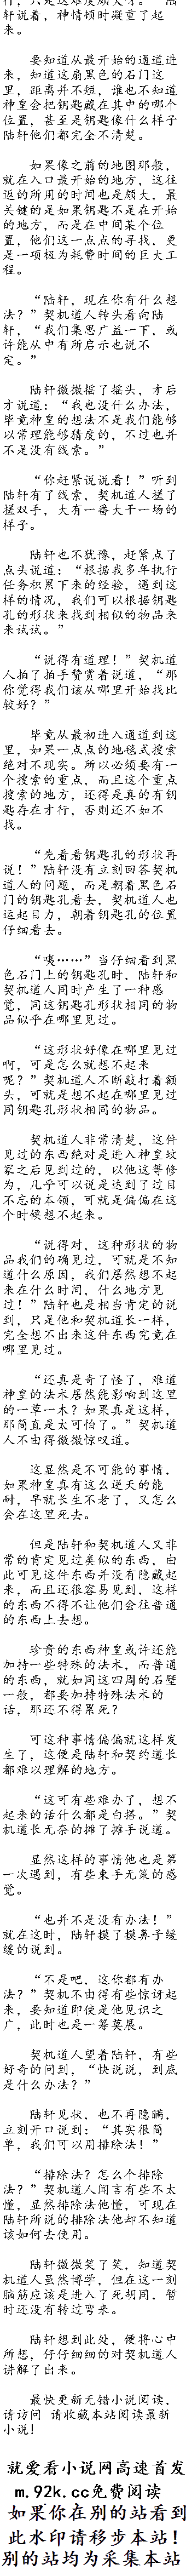 陆轩说着，神情顿时凝重了起
来。
要知道从最开始的通道进
来，知道这扇黑色的石门这
里，距离并不短，谁也不知道
神皇会把钥匙藏在其中的哪个
位置，甚至是钥匙像什么样子
陆轩他们都完全不清楚。
如果像之前的地图那般，
就在入口最开始的地方，这往
返的所用的时间也是颇大，最
关键的是如果钥匙不是在开始
的地方，而是在中间某个位
置，他们这一点点的寻找，更
是一项极为耗费时间的巨大工
程。
“陆轩，现在你有什么想
法？”契机道人转头看向陆
轩，“我们集思广益一下，或
许能从中有所启示也说不
定。”
陆轩微微摇了摇头，才后
才说道：“我也没什么办法，
毕竟神皇的想法不是我们能够
以常理能够猜度的，不过也并
不是没有线索。”
“你赶紧说说看！”听到
陆轩有了线索，契机道人搓了
搓双手，大有一番大干一场的
样子。
陆轩也不犹豫，赶紧点了
点头说道：“根据我多年执行
任务积累下来的经验，遇到这
样的情况，我们可以根据钥匙
孔的形状来找到相似的物品来
来试试。”
“说得有道理！”契机道
人拍了拍手赞赏着说道，“那
你觉得我们该从哪里开始找比
较好？”
毕竟从最初进入通道到这
里，如果一点点的地毯式搜索
绝对不现实。所以必须要有一
个搜索的重点，而且这个重点
搜索的地方，还得是真的有钥
匙存在才行，否则还不如不
找。
“先看看钥匙孔的形状再
说！”陆轩没有立刻回答契机
道人的问题，而是朝着黑色石
门的钥匙孔看去，契机道人也
运起目力，朝着钥匙孔的位置
仔细看去。
“咦……”当仔细看到黑
色石门上的钥匙孔时，陆轩和
契机道人同时产生了一种感
觉，同这钥匙孔形状相同的物
品似乎在哪里见过。
“这形状好像在哪里见过
啊，可是怎么就想不起来
呢？”契机道人不断敲打着额
头，可就是想不起在哪里见过
同钥匙孔形状相同的物品。
契机道人非常清楚，这件
见过的东西绝对是进入神皇坟
冢之后见到过的，以他这等修
为，几乎可以说是达到了过目
不忘的本领，可就是偏偏在这
个时候想不起来。
“说得对，这种形状的物
品我们的确见过，可就是不知
道什么原因，我们居然想不起
来在什么时间，什么地方见
过！”陆轩也是相当肯定的说
到，只是他和契机道长一样，
完全想不出来这件东西究竟在
哪里见过。
“还真是奇了怪了，难道
神皇的法术居然能影响到这里
的一草一木？如果真是这样，
那简直是太可怕了。”契机道
人不由得微微惊叹道。
这显然是不可能的事情，
如果神皇真有这么逆天的能
耐，早就长生不老了，又怎么
会在这里死去。
但是陆轩和契机道人又非
常的肯定见过类似的东西，由
此可见这件东西并没有隐藏起
来，而且还很容易见到，这样
的东西不得不让他们会往普通
的东西上去想。
珍贵的东西神皇或许还能
加持一些特殊的法术，而普通
的东西，就如同这四周的石壁
一般，都要加持特殊法术的
话，那还不得累死？
可这种事情偏偏就这样发
生了，这便是陆轩和契约道长
都难以理解的地方。
“这可有些难办了，想不
起来的话什么都是白搭。”契
机道长无奈的摊了摊手说道。
显然这样的事情他也是第
一次遇到，有些束手无策的感
觉。
“也并不是没有办法！”
就在这时，陆轩摸了摸鼻子缓
缓的说到。
“不是吧，这你都有办
法？”契机不由得有些惊讶起
来，要知道即使是他见识之
广，此时也是一筹莫展。
契机道人望着陆轩，有些
好奇的问到，“快说说，到底
是什么办法？”
陆轩见状，也不再隐瞒，
立刻开口说到：“其实很简
单，我们可以用排除法！”
“排除法？怎么个排除
法？”契机道人闻言有些不太
懂，显然排除法他懂，可现在
陆轩所说的排除法他却不知道
该如何去使用。
陆轩微微笑了笑，知道契
机道人虽然博学，但在这一刻
脑筋应该是进入了死胡同，暂
时还没有转过弯来。
陆轩想到此处，便将心中
所想，仔仔细细的对契机道人
讲解了出来。
最快更新无错小说阅读，
请访问 请收藏本站阅读最新
小说！
就爱看小说网高速首发
m.92k.cc免费阅读
如果你在别的站看到
此水印请移步本站！
别的站均为采集本站